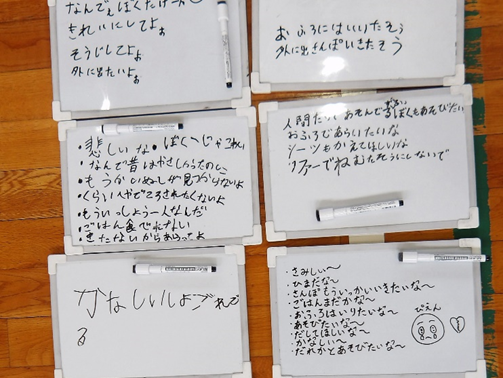 なんでぇぼくだけ
きれいにしてよぉ
そうじしてよぉ
外に出たいよぉ
おふろにはいりたそう
外に出さんぽいきたそう
・悲しいな・ぼく
・なんで昔はやさしかったのに
・もうかいぬしが見つからないよ
・くらいへやでころされたくないよ
・もういっしょう一人なんだ
・ごはん食べれない
・きたないからあらってよ
人間だけあそんでぼくもあそびたい
おふろであらいたいな
シーツもかえてほしいな
ソファーでねむたそうにしないで
かなしいしよごれて
る
・さみしい〜
・ひまだな〜
・さんぽもういっかいいきたいな〜
・ごはんまだかな〜
・おふろはいりたいな〜
・あそびたいな〜
・だしてほしいな〜
・かなしい〜
・だれかとあそびたいな〜
ぴえん